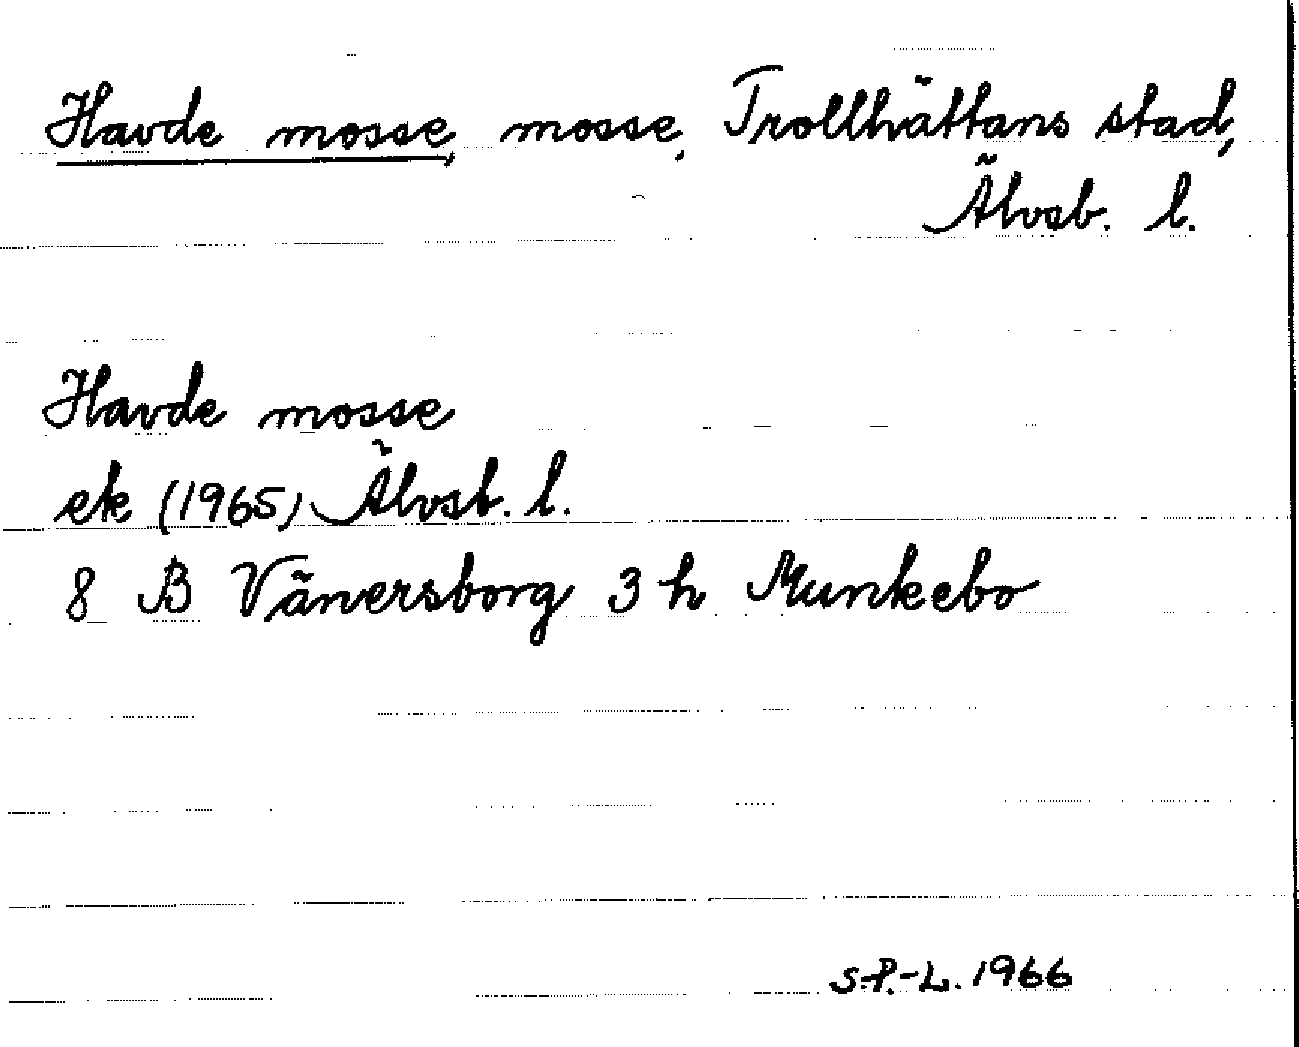 Havde mosse, mosse, Trollhättans stad,
Älvsb. l.
Havde mosse
ek (1965) Älvsb. l.
8 B Vänersborg 3 h Munkebo
S.P.-L. 1966